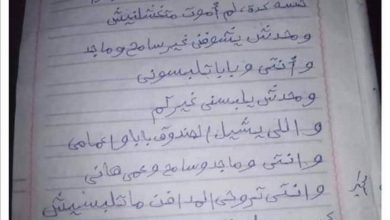 نفسه كدة، لم أموت متغسلنيش
ومحدش يشوفني غير سامح وماجد
وأنتي وبابا تلبسوني
ومحدش يلبسني غيركم
واللي يشيل الصندوق بابا وأعمامي
وانتي وماجد وسامح وعمي هاني
وانتي تروحي المدافن ماتلبسيش